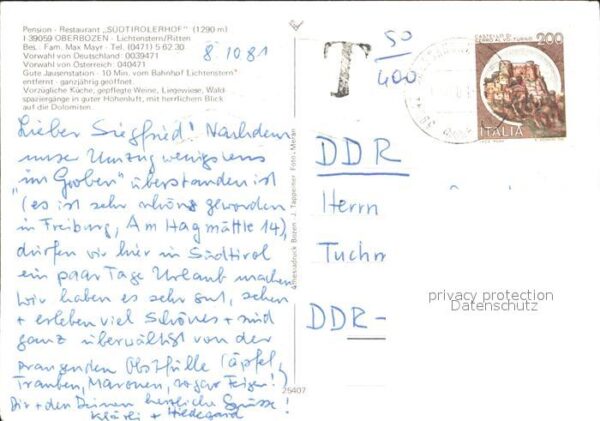 Pension - Restaurant „SÜDTIROLERHOF" (1290 m)
I 39059 OBERBOZEN - Lichtenstern/Ritten
Bes. Fam. Max Mayr - Tel. (0471) 5 62 30
Vorwahl von Deutschland: 0039471
Vorwahl von Österreich: 040471
Gute Jausenstation - 10 Min. vom Bahnhof Lichtenstern
entfernt - ganzjährig geöffnet.
Vorzügliche Küche, gepflegte Weine, Liegewiese, Wald-
spaziergänge in guter Höhenluft, mit herrlichem Blick
auf die Dolomiten.
8.10 81
Lieber Siegfried! Nachdem
unser Umzug wenigstens
"im Groben" überstanden ist
(es ist sehr schön geworden
in Freiburg, Am Hagmättle 14),
dürfen wir hier in Südtirol
ein paar Tage Urlaub machen
Wir haben es sehr gut, sehen
+ erleben viel Schönes + sind
ganz überwältigt von der
prangenden Obstfülle (Äpfel,
Trauben, Maronen, sogar Feigen!)
Dir + den Deinen herzliche Grüsse!
+ Hildegard
J. Tappeiner
25407
T
50
400
CASTELLO DI
CERRO AL VOLTURNO
200
ITALIA
DDR
Herrn
Tuchm
DDR-
privacy protection
Datenschutz